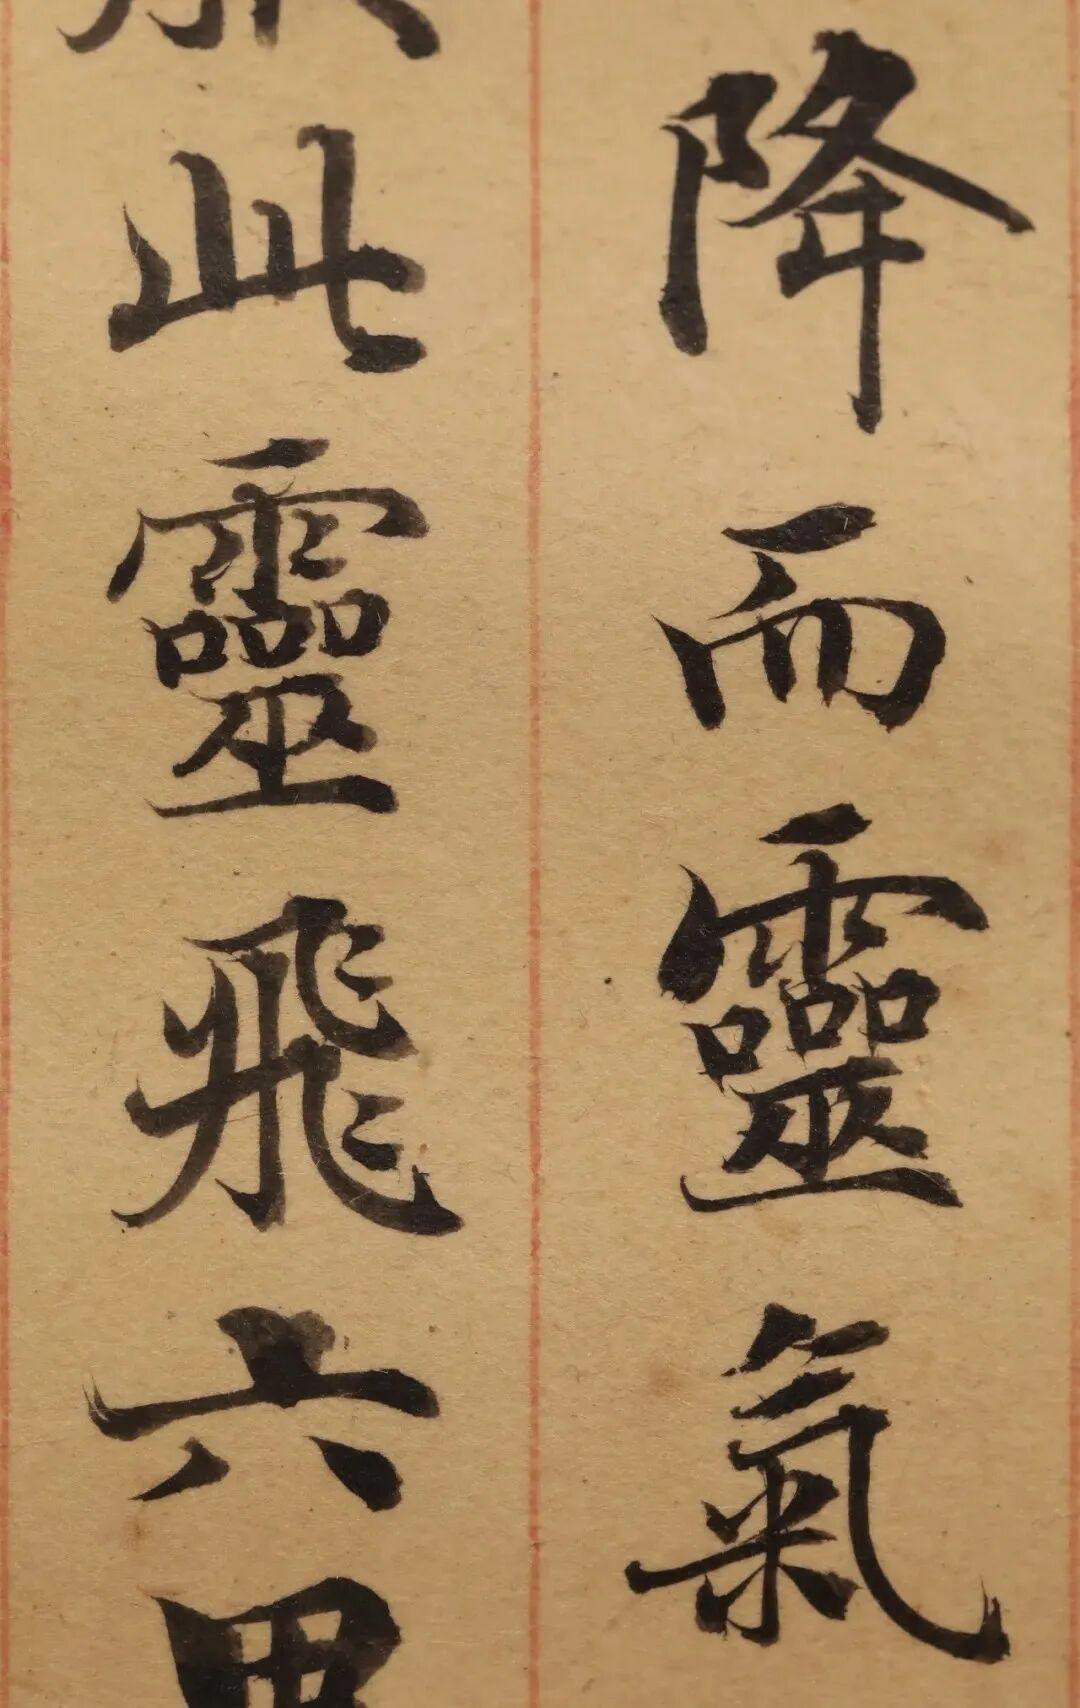 降而靈氣
此靈飛六甲